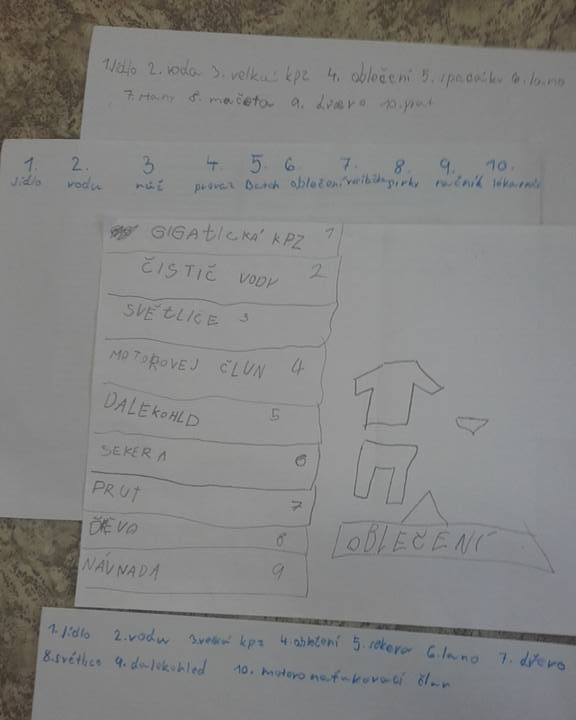 1. Jídlo 2. voda 3. velká kpz 4. oblečení 5. spacák 6. lano
7. stany 8. mačeta 9. dřevo 10. prut
1. 2. 3 4. 5. 6. 7. 8. 9. 10.
Jídlo vodu nůž provaz oblečení sirky ručník
GIGATICKÁ KPZ 1
ČISTIČ VODY 2
SVĚTLICE 3
MOTOROVEJ ČLUN 4
DALEKOHLD 5
SEKERA 6
PRUT 7
8
NÁVNADA 9
OBLEČENÍ
1. Jídlo 2. vodu 3. velká kpz 4. oblečení 5. sekera 6. lano 7. dřevo
8. světlice 9. dalekohled 10. motoro nafukovací člun